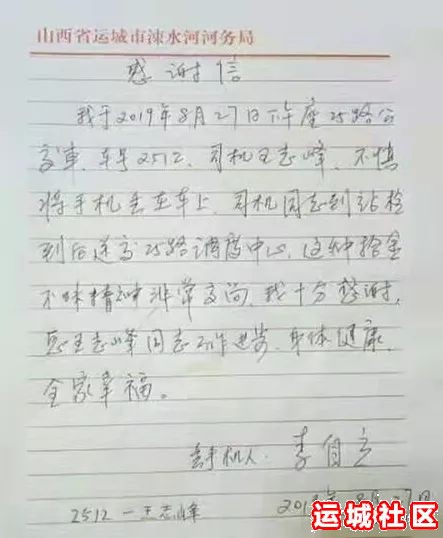 山西省运城市涑水河河务局
感谢信
我于2019年8月27日下午座25路公
交车,车号2512,司机王志峰,不慎
将手机丢在车上,司机同志到站检
到后送交25路调度中心,这种拾金
不昧精神非常高尚,我十分感谢,
愿王志峰同志工作进步,身体健康,
全家幸福。
丢手机人:李自立
2512 一王志峰 2019年8月27日
运城社区